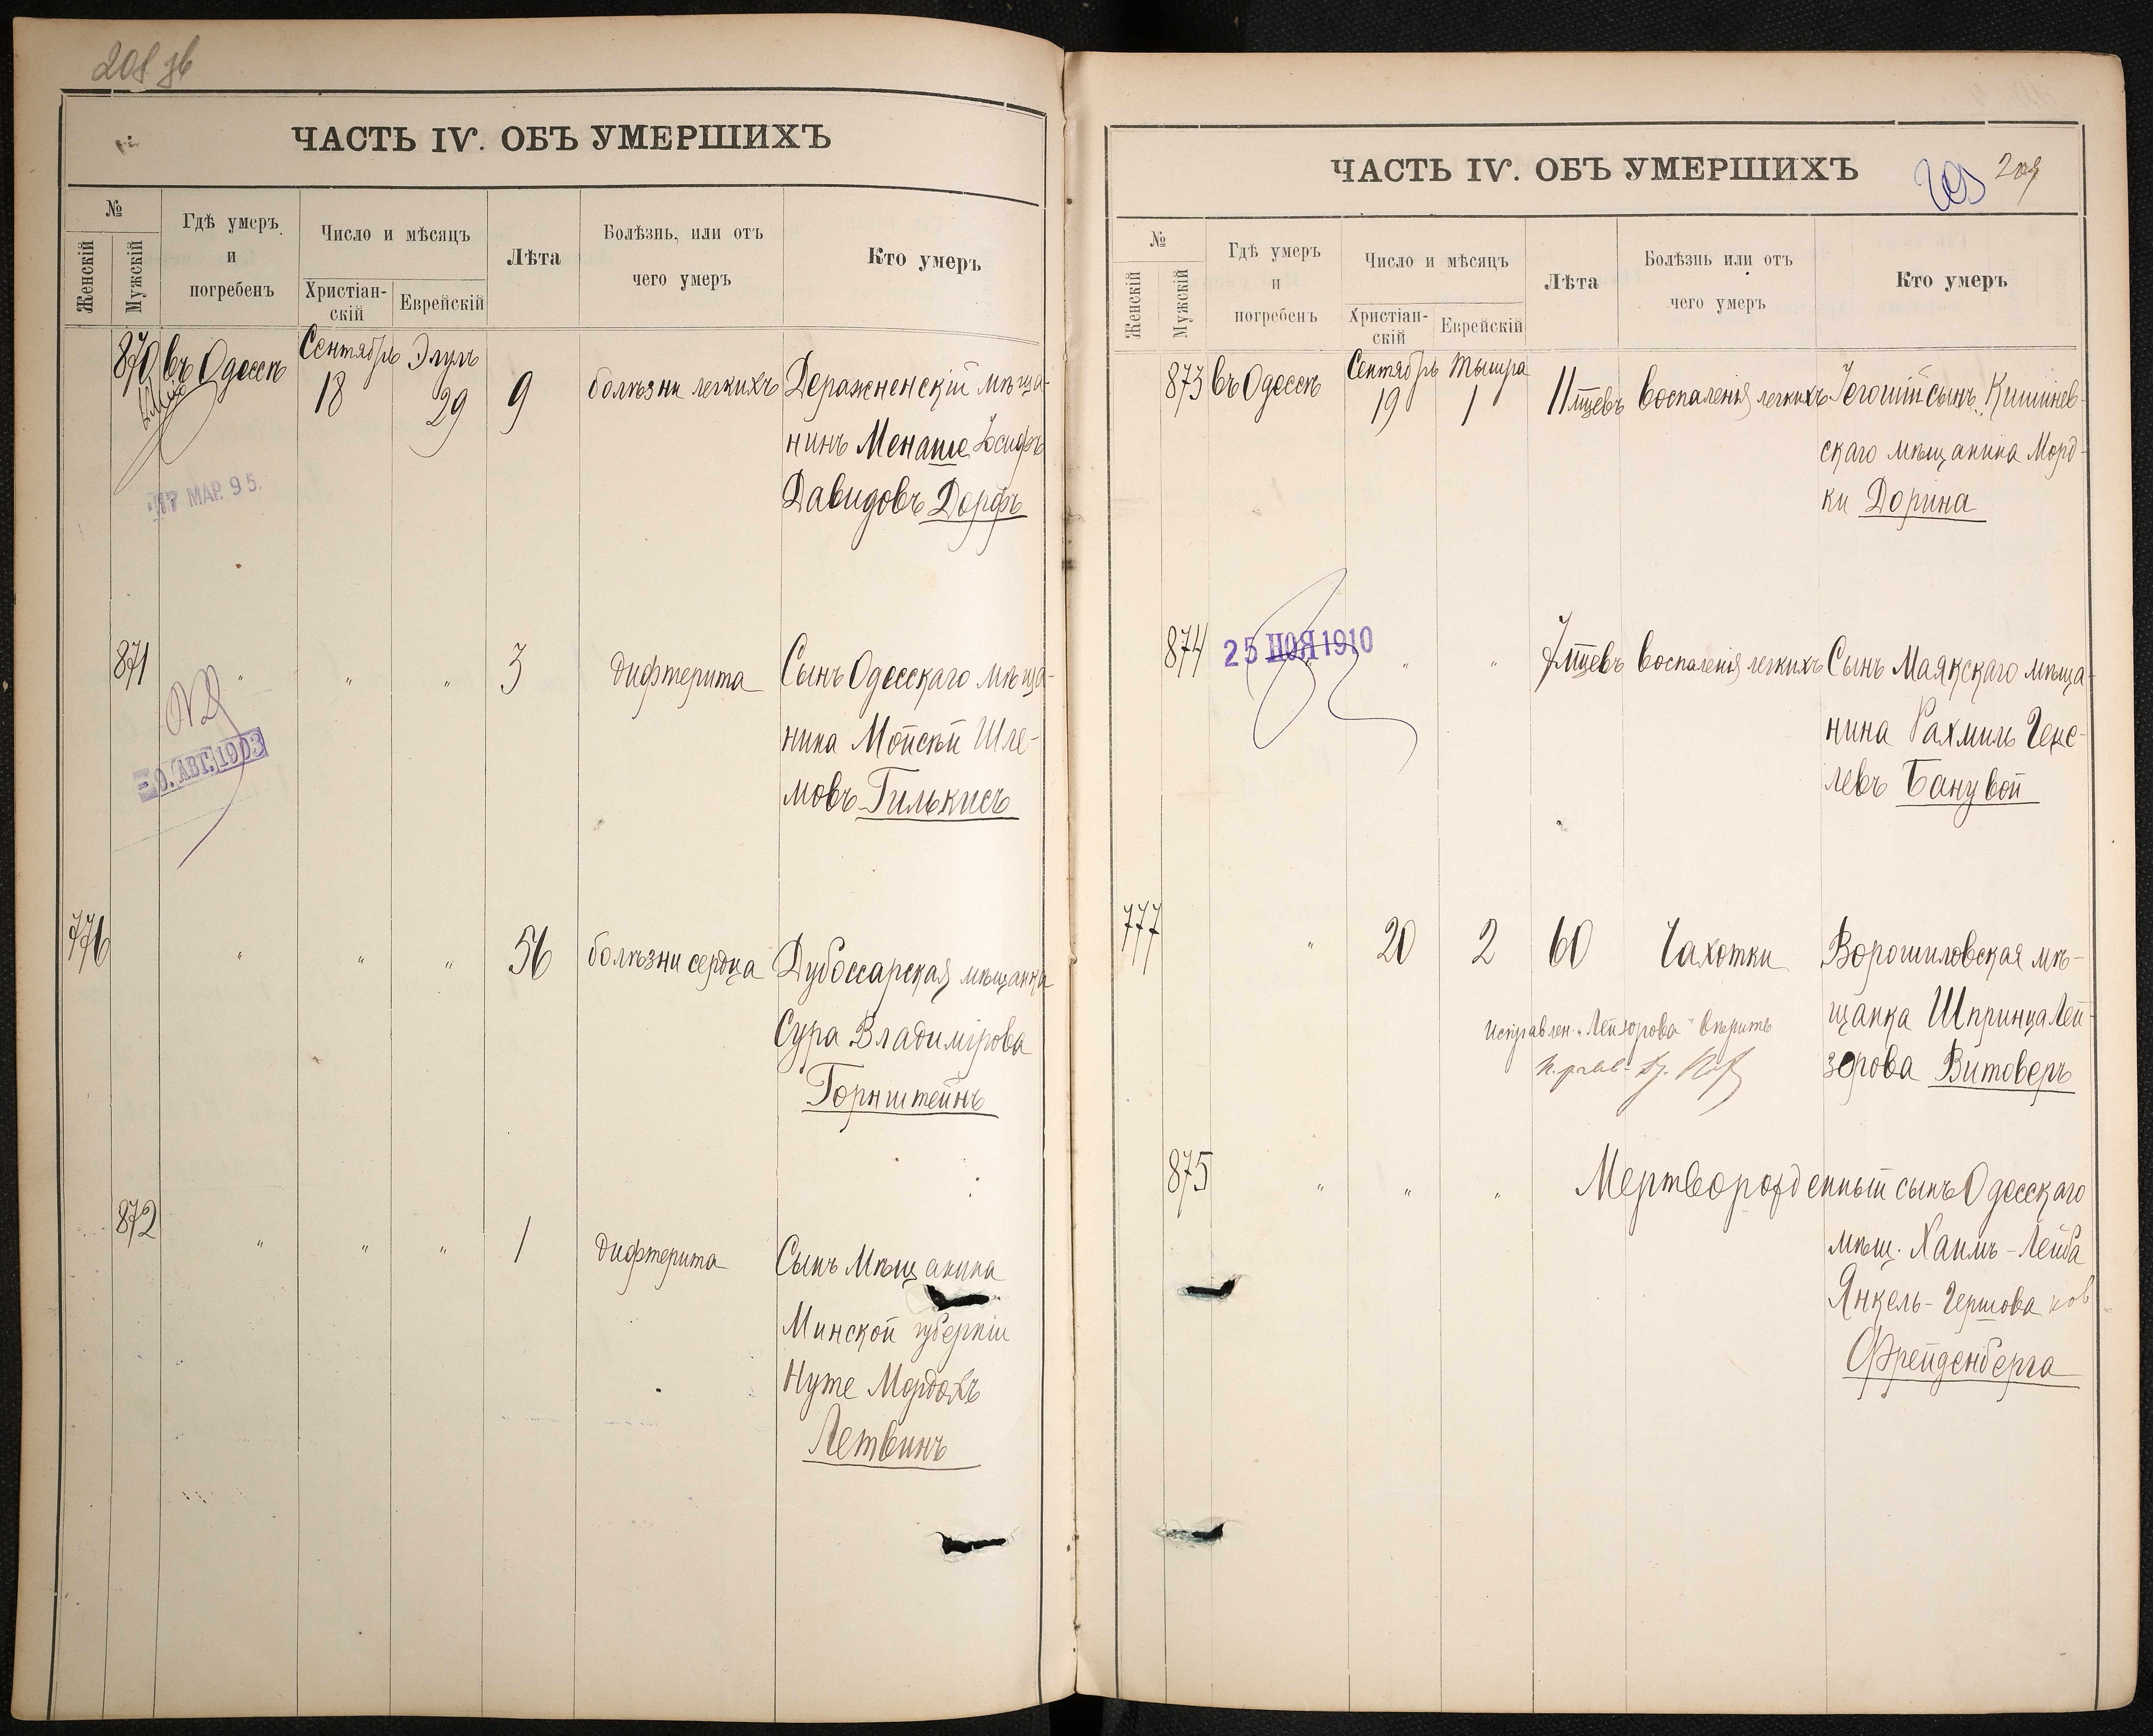 208 об
ЧАСТЬ IV. ОБЪ УМЕРШИХЪ
№
Женскій
Мужскій
Гдѣ умеръ
и
погребенъ
Число и мѣсяцъ
Христіан-
скій
Еврейскій
Лѣта
Болѣзнь, или отъ
чего умеръ
Кто умеръ
870 въ Одессѣ Сентябрь 18 Элулъ 29 9 болѣзни легкихъ Деражненскій мѣща-
нинъ Менаше Іосифъ
Давидовъ Дорфъ
17 МАР. 95.
871 " " " 3 дифтерита Сынъ Одесскаго мѣща-
нина Мойсѣй Шле-
мовъ Гилькисъ
9. АВГ. 1903
776 " " " 56 болѣзни сердца Дубоссарская мѣщанка
Сура Владимірова
Горнштейнъ
872 " " " 1 дифтерита Сынъ мѣщанина
Минской губерніи
Нуте Мордохъ
Летвинъ
209 209
ЧАСТЬ IV. ОБЪ УМЕРШИХЪ
№
Женскій
Мужскій
Гдѣ умеръ
и
погребенъ
Число и мѣсяцъ
Христіан-
скій
Еврейскій
Лѣта
Болѣзнь или отъ
чего умеръ
Кто умеръ
873 въ Одессѣ Сентябрь 19 Тышра 1 11 мцевъ воспаленія легкихъ Іегошій сынъ Кишинев-
скаго мѣщанина Морд-
ки Дорина
874 25 НОЯ 1910 " " " 7 мцевъ воспаленія легкихъ Сынъ Маякскаго мѣща-
нина Рахмиль Гекс-
левъ Банувой
777 " 20 2 60 Чахотки Ворошиловская мѣ-
щанка Шпринца Лей-
зорова Витоверъ
Исправлен. "Лейзорова" вѣрить
875 " " " Мертворожденный сынъ Одесскаго
мѣщ. Хаимъ-Лейба
Янкель-Гершова
Фрейденберга